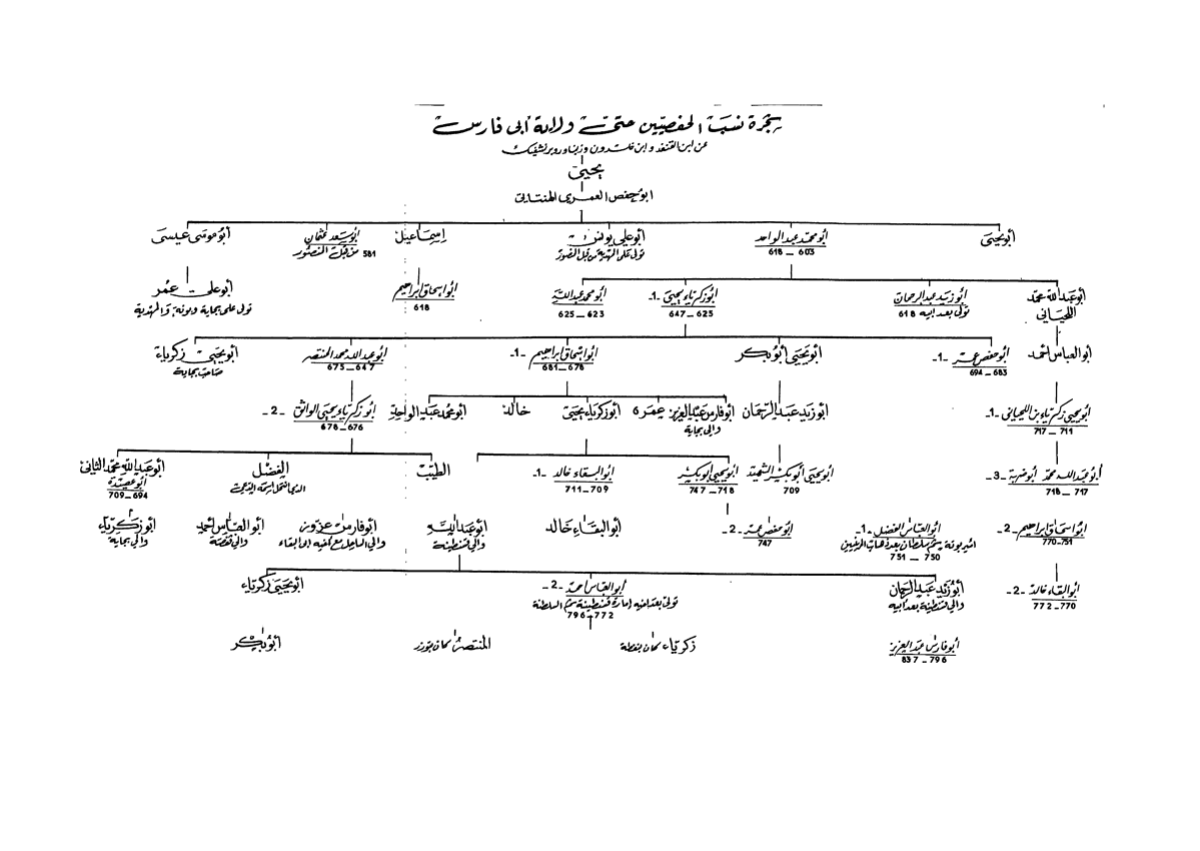 شجرة نسب الحفصيين حتى ولاية أبي فارس
عن ابن القنفذ وابن خلدون وزنباور وبرنشفيك
يحيى
ابو حفص العمرى الهنتاتى
أبو يحيى
أبو محمد عبد الواحد
603 – 618
أبو علي يونس
تولى على المهدية من قبل المنصور
إسماعيل
أبو سعد عثمان
581 من قبل المنصور
أبو موسى عيسى
أبو عبد الله محمد اللحياني
أبو زيد عبد الرحمان
تولى بعد ابيه 618
أبو زكرياء يحيى -1-
625 – 647
أبو محمد عبد الله
623 – 625
أبو اسحاق ابراهيم
618
أبو علي عمر
تولى على بجاية وبونة والمهدية
أبو العباس أحمد
أبو حفص عمر -1-
683 – 694
أبو يحيى أبو بكر
أبو اسحاق ابراهيم -1-
678 – 681
أبو عبد الله محمد المنتصر
647 – 675
أبو يحيى زكرياء
صاحب بجاية
أبو يحيى زكرياء بن اللحياني -1-
711 – 717
أبو زيد عبد الرحمان
أبو فارس عبد العزيز
والي بجاية
عمر
أبو زكرياء يحيى
خالد
أبو محمد عبد الواحد
أبو زكرياء يحيى الواثق -2-
676 – 678
أبو عبد الله محمد أبو ضربة -3-
717 – 718
أبو يحيى أبو بكر الشهيد
709
أبو يحيى أبو بكر
718 – 747
أبو البقاء خالد -1-
709 – 711
الطيب
الفضل
أبو عبد الله محمد الثاني
أبو عصيدة
694 – 709
أبو اسحاق ابراهيم -2-
751 – 770
أبو العباس الفضل -1-
امير بونة ثم سلطان بعد ذهاب المرينيين
750 – 751
أبو حفص عمر -2-
747
أبو البقاء خالد
أبو عبد الله
والي قسنطينة
أبو فارس عزوز
والي الساحل مع أخيه أبي البقاء
أبو العباس أحمد
والي قفصة
أبو زكرياء
والي بجاية
أبو البقاء خالد -2-
770 – 772
أبو زيد عبد الرحمان
والي قسنطينة بعد أبيه
أبو العباس احمد -2-
تولى بعد اخيه إمارة قسنطينة ثم السلطنة
772 – 796
أبو يحيى زكرياء
أبو فارس عبد العزيز
796 – 837
زكرياء كان بنفطة
المنتصر كان بتوزر
أبو بكر